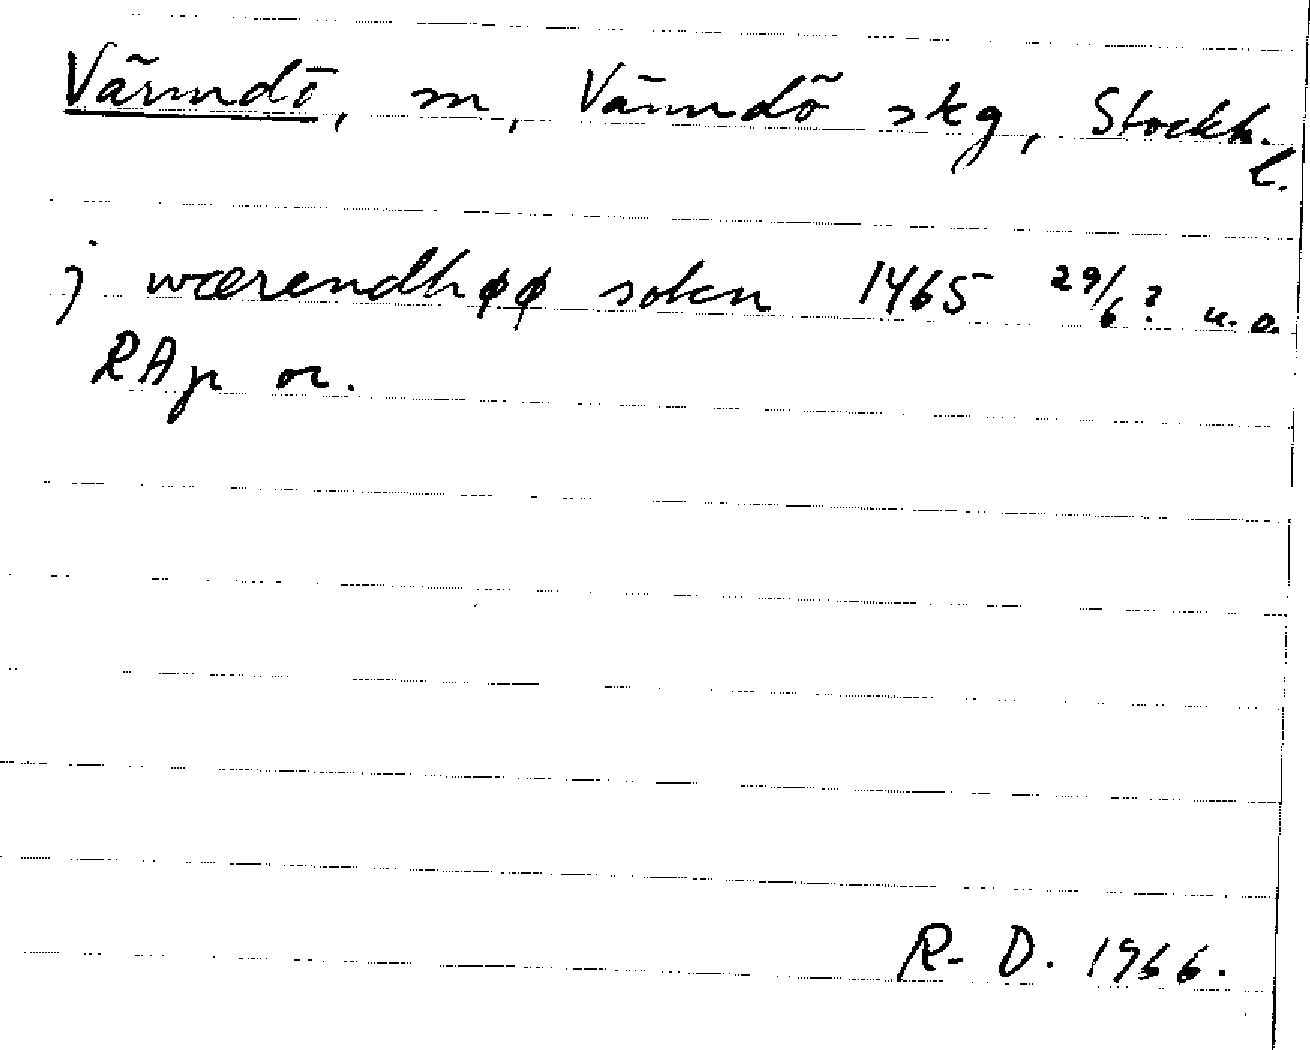 Värmdö, sn, Värmdö skg, Stockh.
l.
j wærendhøø sokn 1465 29/6? u.o.
RAp or.
R-D. 1966.